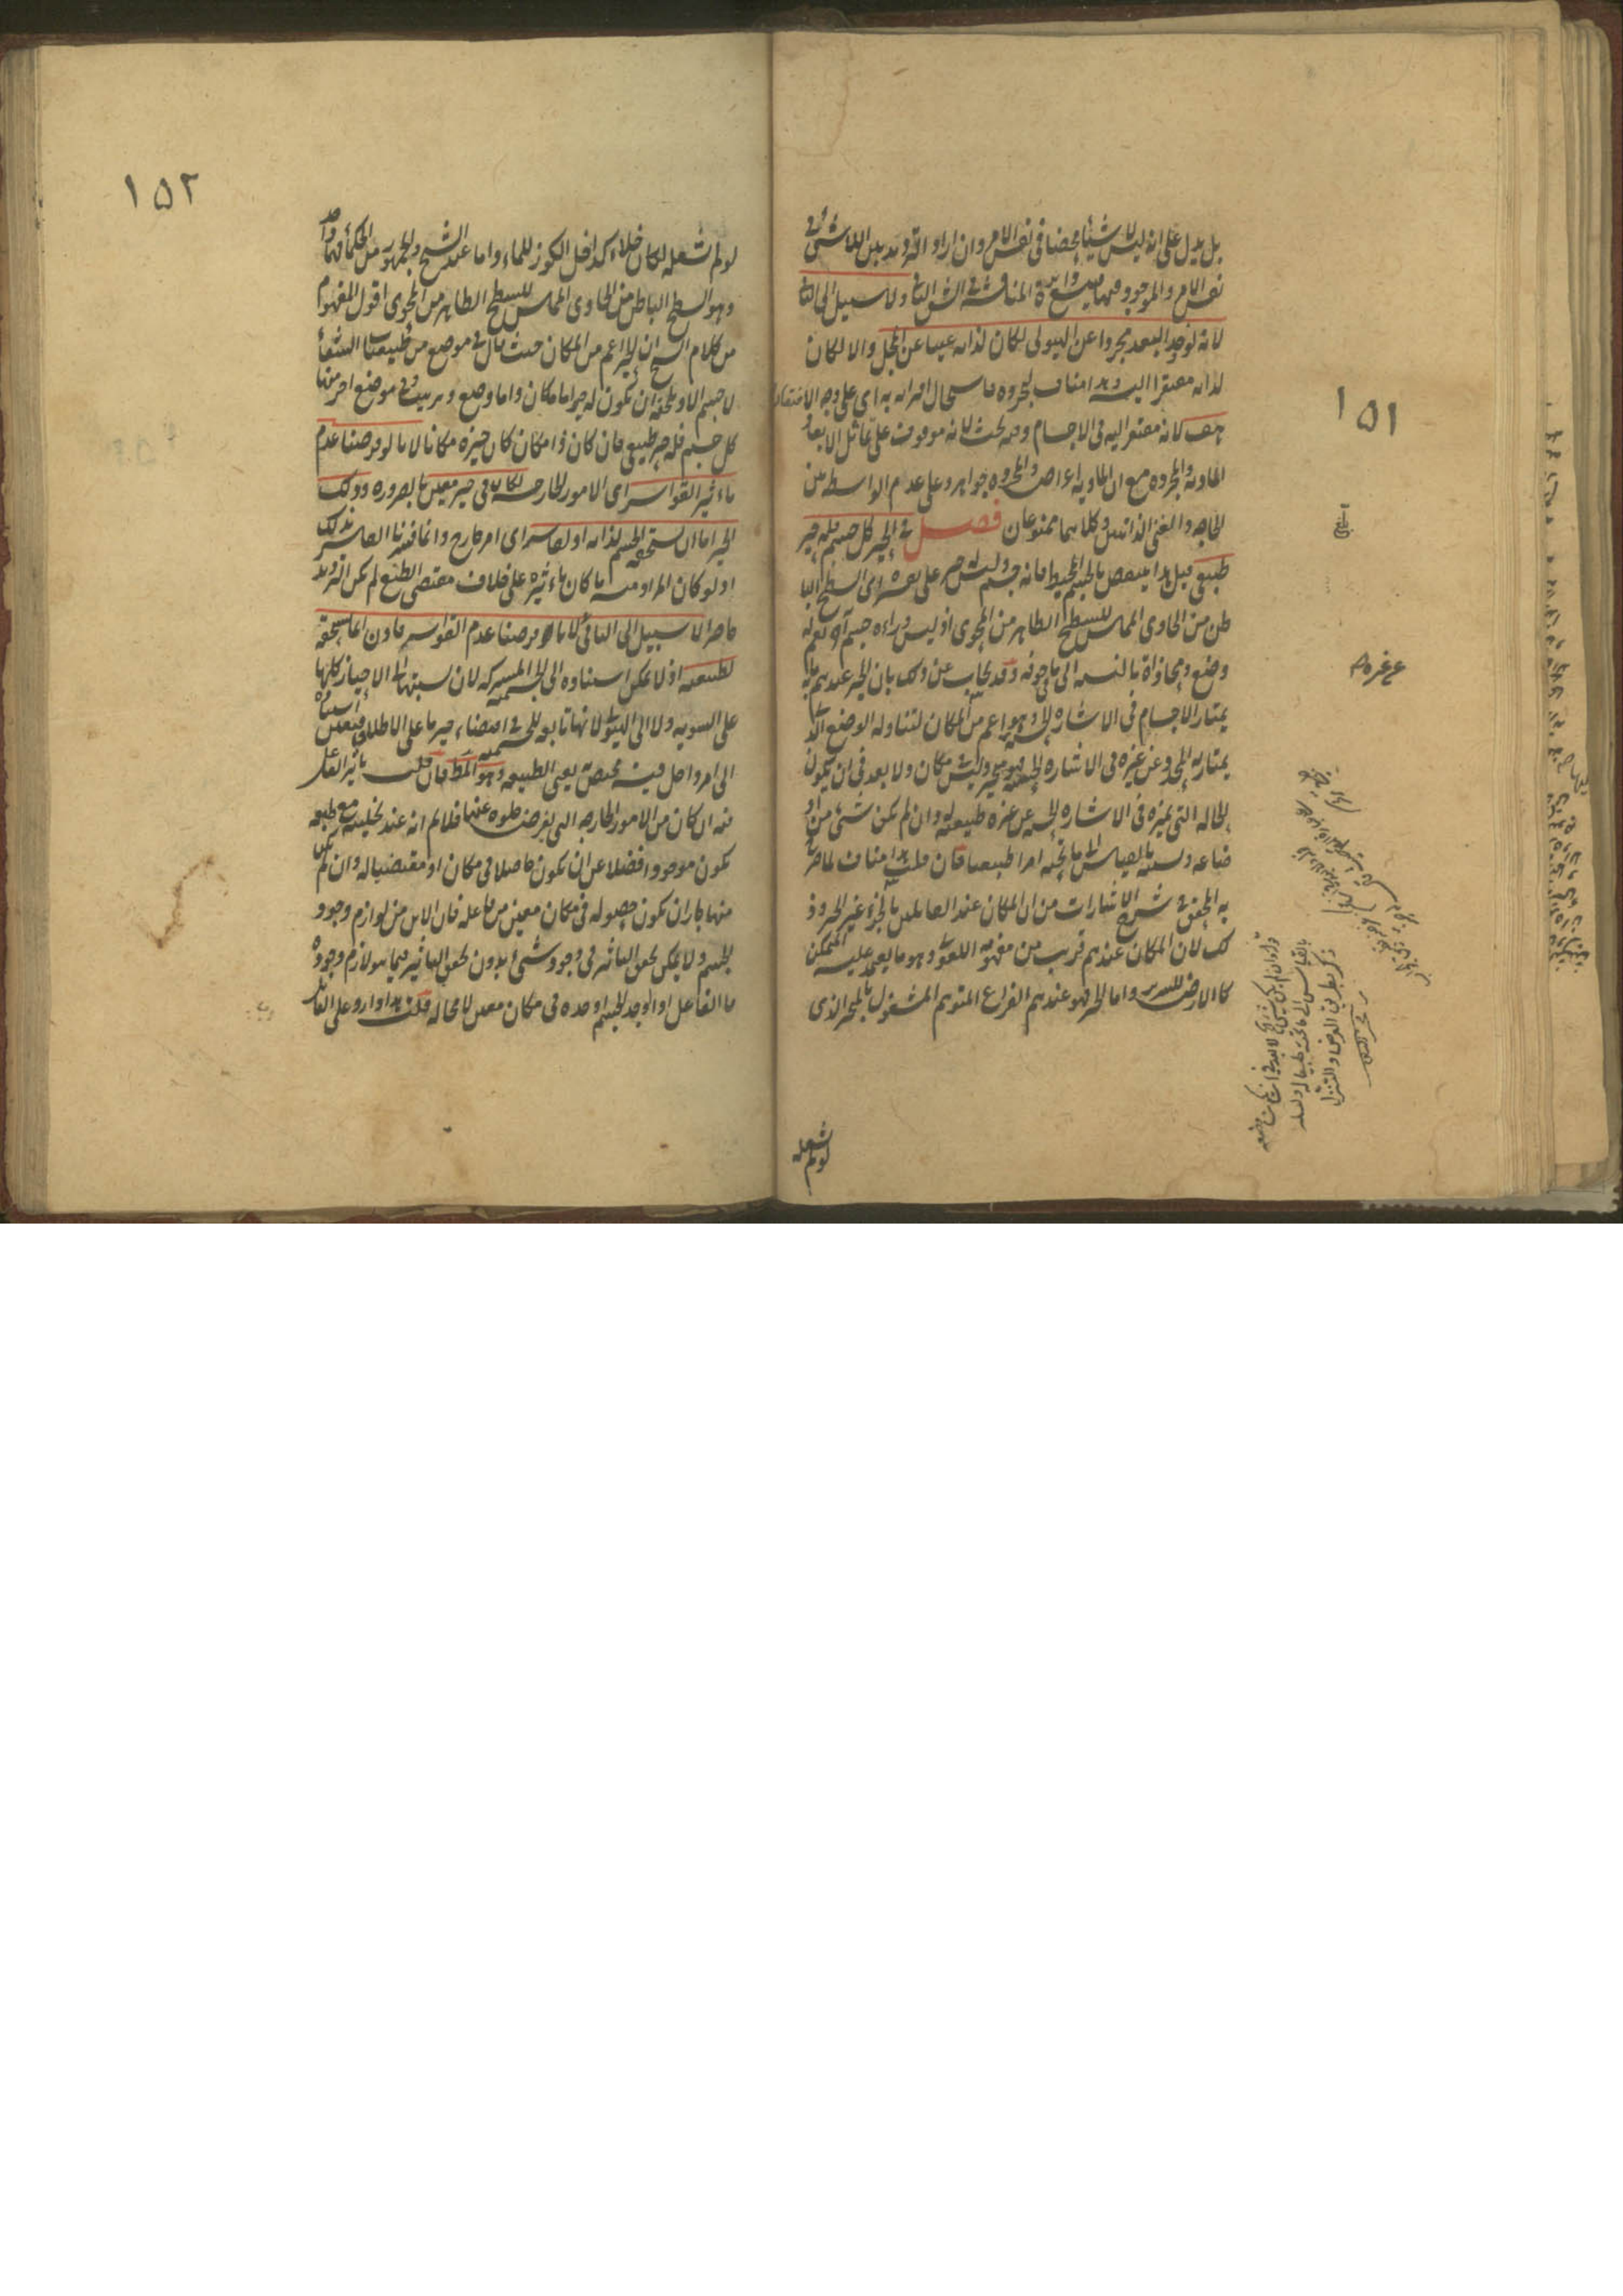 ١٥١
بل يدل على انه ليس لا شيئا محضا فى نفس الامر وان اراد الترديد بين اللاشئ فى
نفس الامر والموجود فيها فيتسع دائرة المناقشة فى الشق الثانى ولا سبيل الى الثانى
لانه لو وجد البعد مجردا عن الهيولى لكان لذاته غنيا عن المحل والا لكان
لذاته مفتقرا اليه وهذا مناف لتجرده فاستحال اقترانه به اى على وجه الافتقار
هف لانه مفتقر اليه فى الاجسام وفيه بحث لانه موقوف على تماثل الابعاد
المادية والمجردة مع ان المادية اعراض والمجردة جواهر وعلى عدم الواسطة بين
الحاجة والغنى الذاتيين وكلاهما ممنوعان فصل فى الحيز كل جسم فله حيز
طبيعى قيل هذا ينتقض بالجسم المحيط فانه جسم وليس له حيز على تفسيره اى السطح البا
طن من الحاوى المماس للسطح الظاهر من المحوى اذ ليس وراءه جسم آخر نعم له
وضع ومحاذاة بالنسبة الى ما فى جوفه وقد يجاب عن ذلك بان الحيز عندهم ما به
يمتاز الاجسام فى الاشارة الحسية وهو اعم من المكان لتناوله الوضع الذى
يمتاز به المحدد عن غيره فى الاشارة الحسية فهو متحيز وليس فى مكان ولا بعد فى ان يكون
الحالة التى تميزه فى الاشارة الحسية عن غيره طبيعية له وان لم يكن شئ من او
ضاعه ونسبته بالقياس الى ما تحته امرا طبيعيا فان قلت هذا مناف لما صرح
به المحقق فى شرح الاشارات من ان المكان عند القائلين بالجزء غير الحيز وذ
لك لان المكان عندهم قريب من مفهومه اللغوى وهو ما يعتمد عليه المتمكن
كالارض للسرير واما الحيز فهو عندهم الفراغ المتوهم المشغول بالمتحيز الذى
لو لم يشغله
١٥٢
لو لم يشغله لكان خلاء كداخل الكوز للماء واما عند الشيخ والجمهور من الحكماء فهما واحد
وهو السطح الباطن من الحاوى المماس للسطح الظاهر من المحوى اقول المفهوم
من كلام الشيخ ان الحيز اعم من المكان حيث قال فى موضع من طبيعيات الشفاء
لا جسم الا ويلحقه ان يكون له حيز اما مكان واما وضع وترتيب وفى موضع آخر منها
كل جسم فله حيز طبيعى فان كان ذا مكان كان حيزه مكانا لانا لو فرضنا عدم
تاءثير القواسر اى الامور الخارجة لكان فى حيز معين بالضرورة وذلك
الحيز اما ان يستحقه الجسم لذاته او لقاسر اى امر خارج وانما فسرنا القاسر بذلك
اذ لو كان المراد منه ما كان تاءثيره على خلاف مقتضى الطبع لم يكن الترديد
حاصرا لا سبيل الى الثانى لانا فرضنا عدم القواسر فاذن انما يستحقه
لطبيعته اذ لا يمكن استناده الى الجسمية المشتركة لان نسبتها الى الاحياز كلها
على السوية ولا الى الهيولى لانها تابعة للجسمية فى اقتضاء حيز ما على الاطلاق فتعين استناده
الى امر داخل فيه مختص به يعنى الطبيعة وهو المط فان قلت تاثير الفاعل
فيه ان كان من الامور الخارجة التى يفرض خلوه عنها فلا نم انه عند تخليته مع طبعه
يكون موجودا فضلا عن ان يكون حاصلا فى مكان او مقتضيا له وان لم يكن
منها جاز ان يكون حصوله فى مكان معين من فاعله فان الاين من لوازم وجود
الجسم ولا يمكن تحقق التاثير فى وجود شئ بدون تحقق التاثير فيما هو لازم وجوده
فالفاعل اذا اوجد الجسم اوجده فى مكان معين لا محالة قلت هذا وارد على القائل